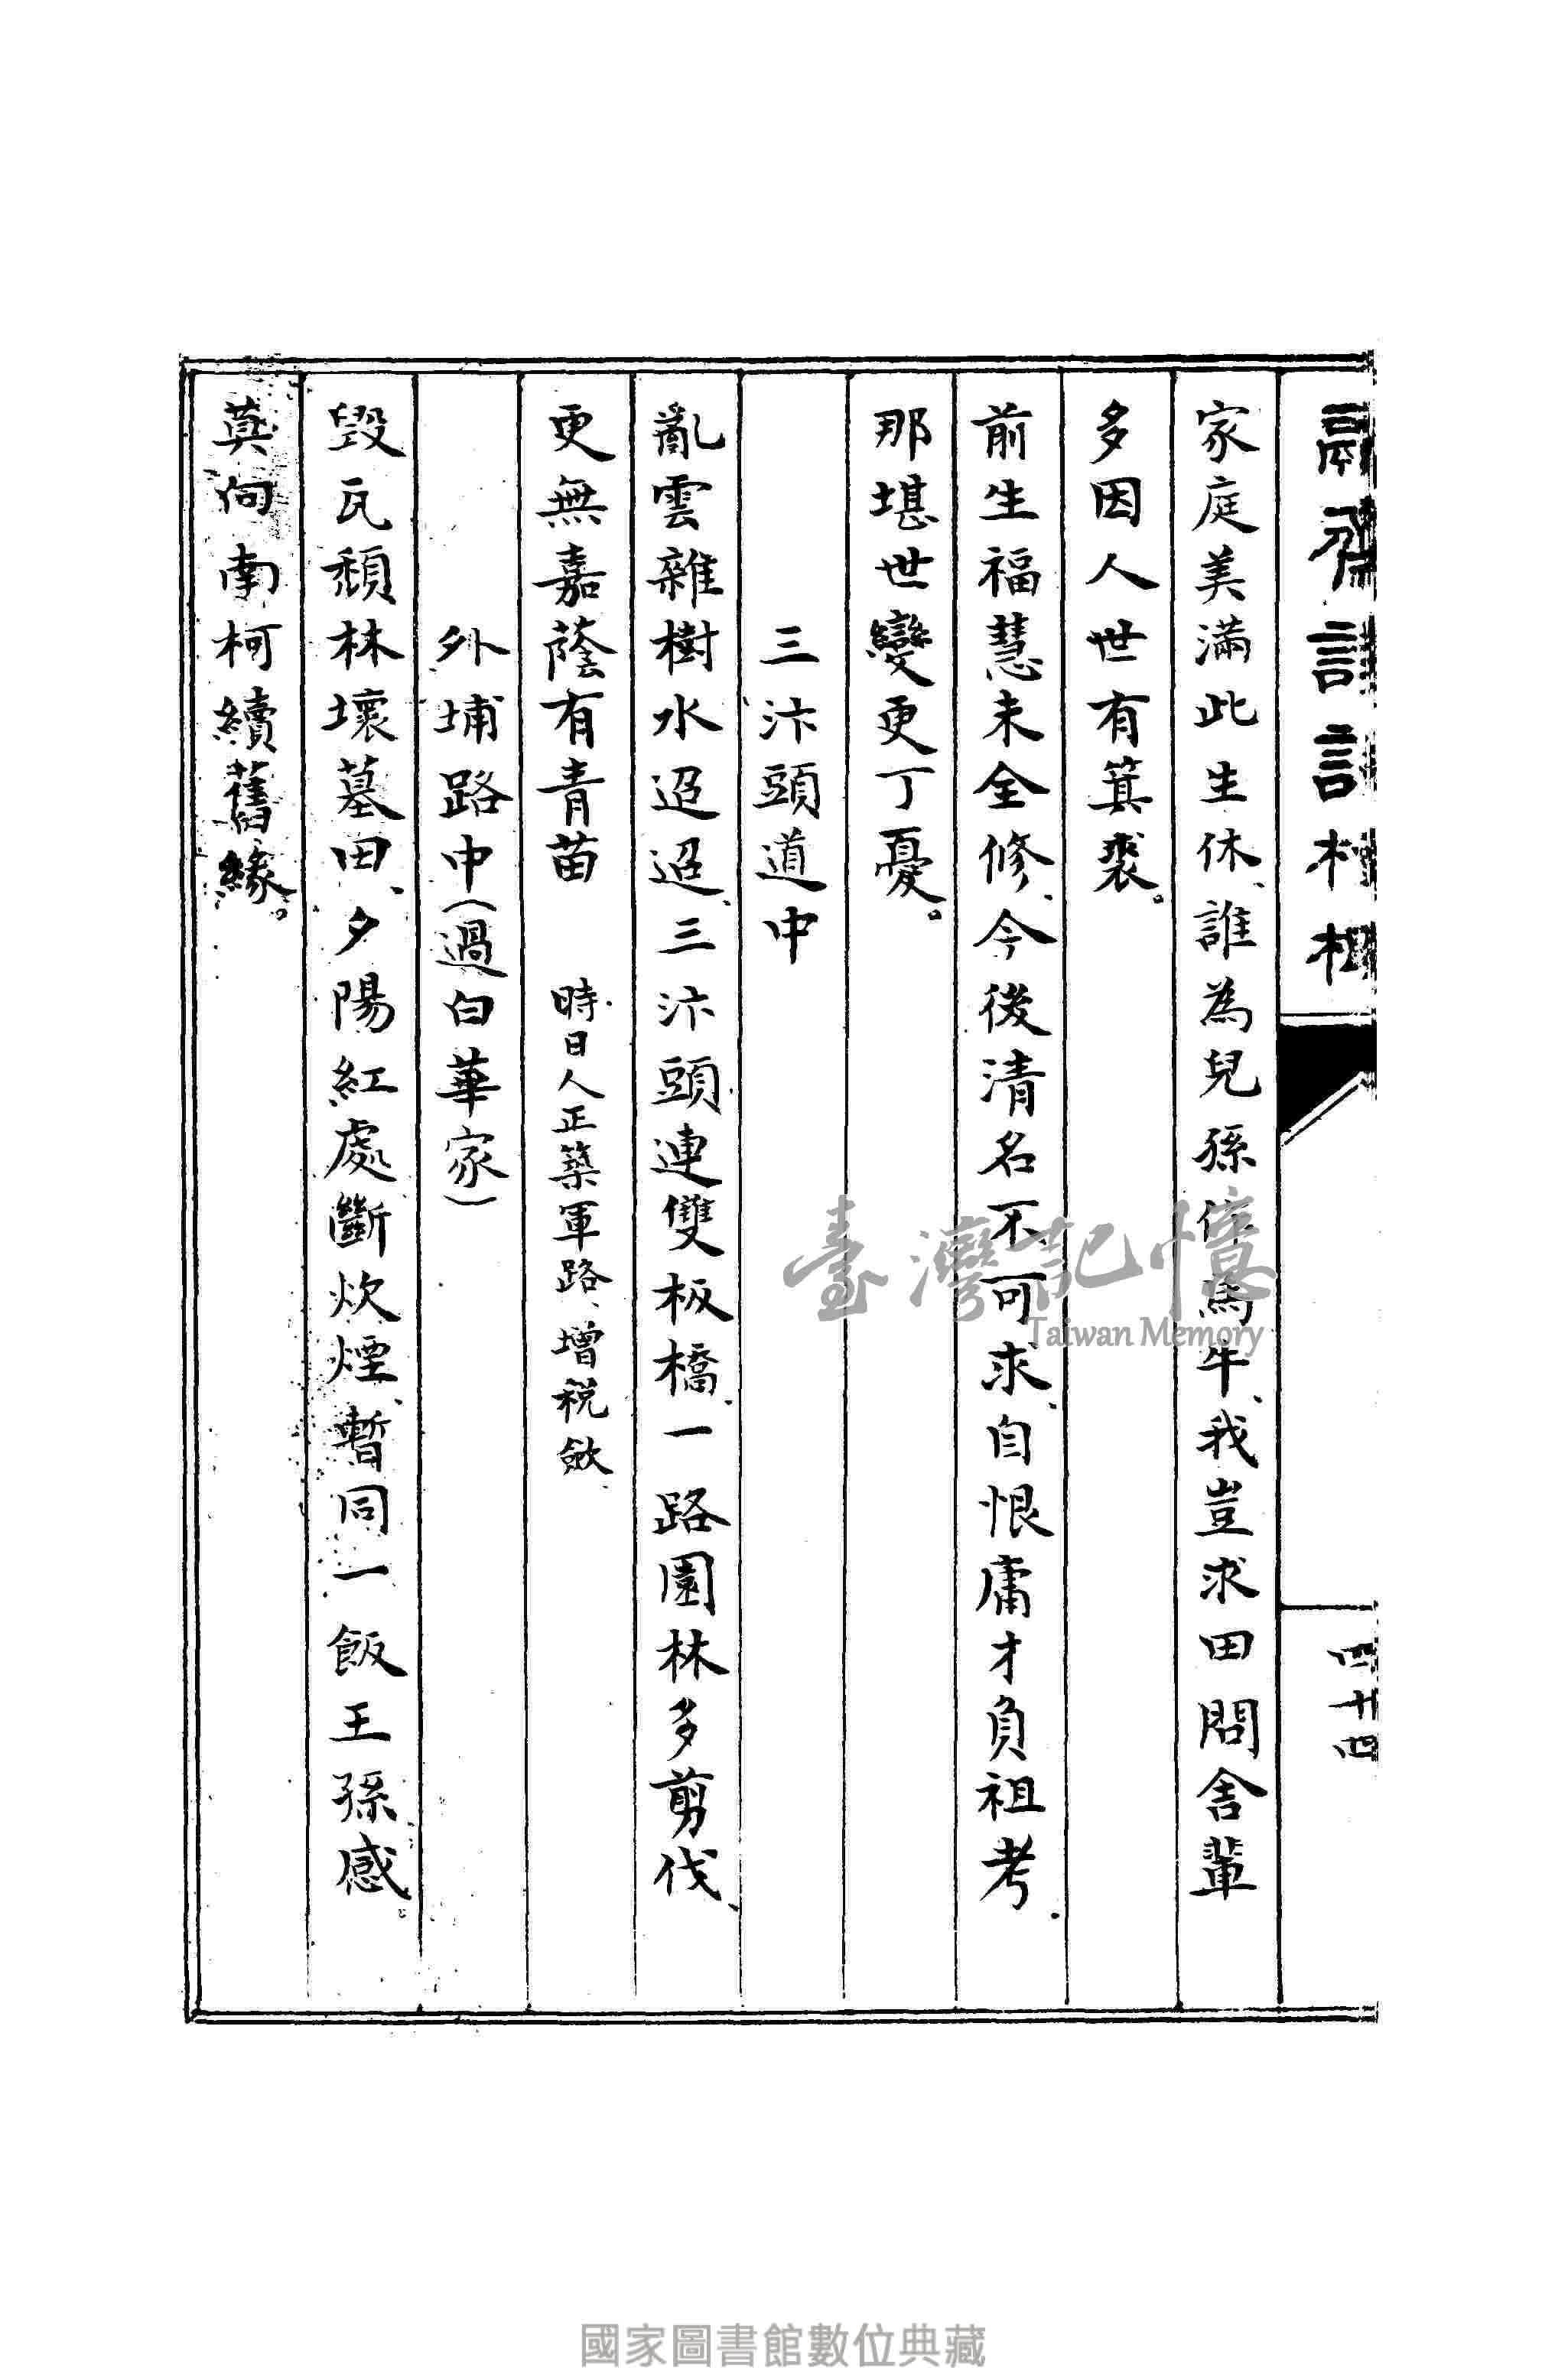 家庭美滿此生休、誰為兒孫作馬牛、我豈求田問舍輩
多因人世有箕裘。
前生福慧未全修、今後清名不可求、自恨庸才負祖考、
那堪世變更丁憂。
三汴頭道中
亂雲雜樹水迢迢、三汴頭連雙板橋、一路園林多剪伐、
更無嘉蔭有青苗 時日人正築軍路、增稅斂
外埔路中(過白華家)
毀瓦頹林壞墓田、夕陽紅處斷炊煙、暫同一飯王孫感
莫向南柯續舊緣。
四十四
臺灣記憶
Taiwan Memory
國家圖書館數位典藏